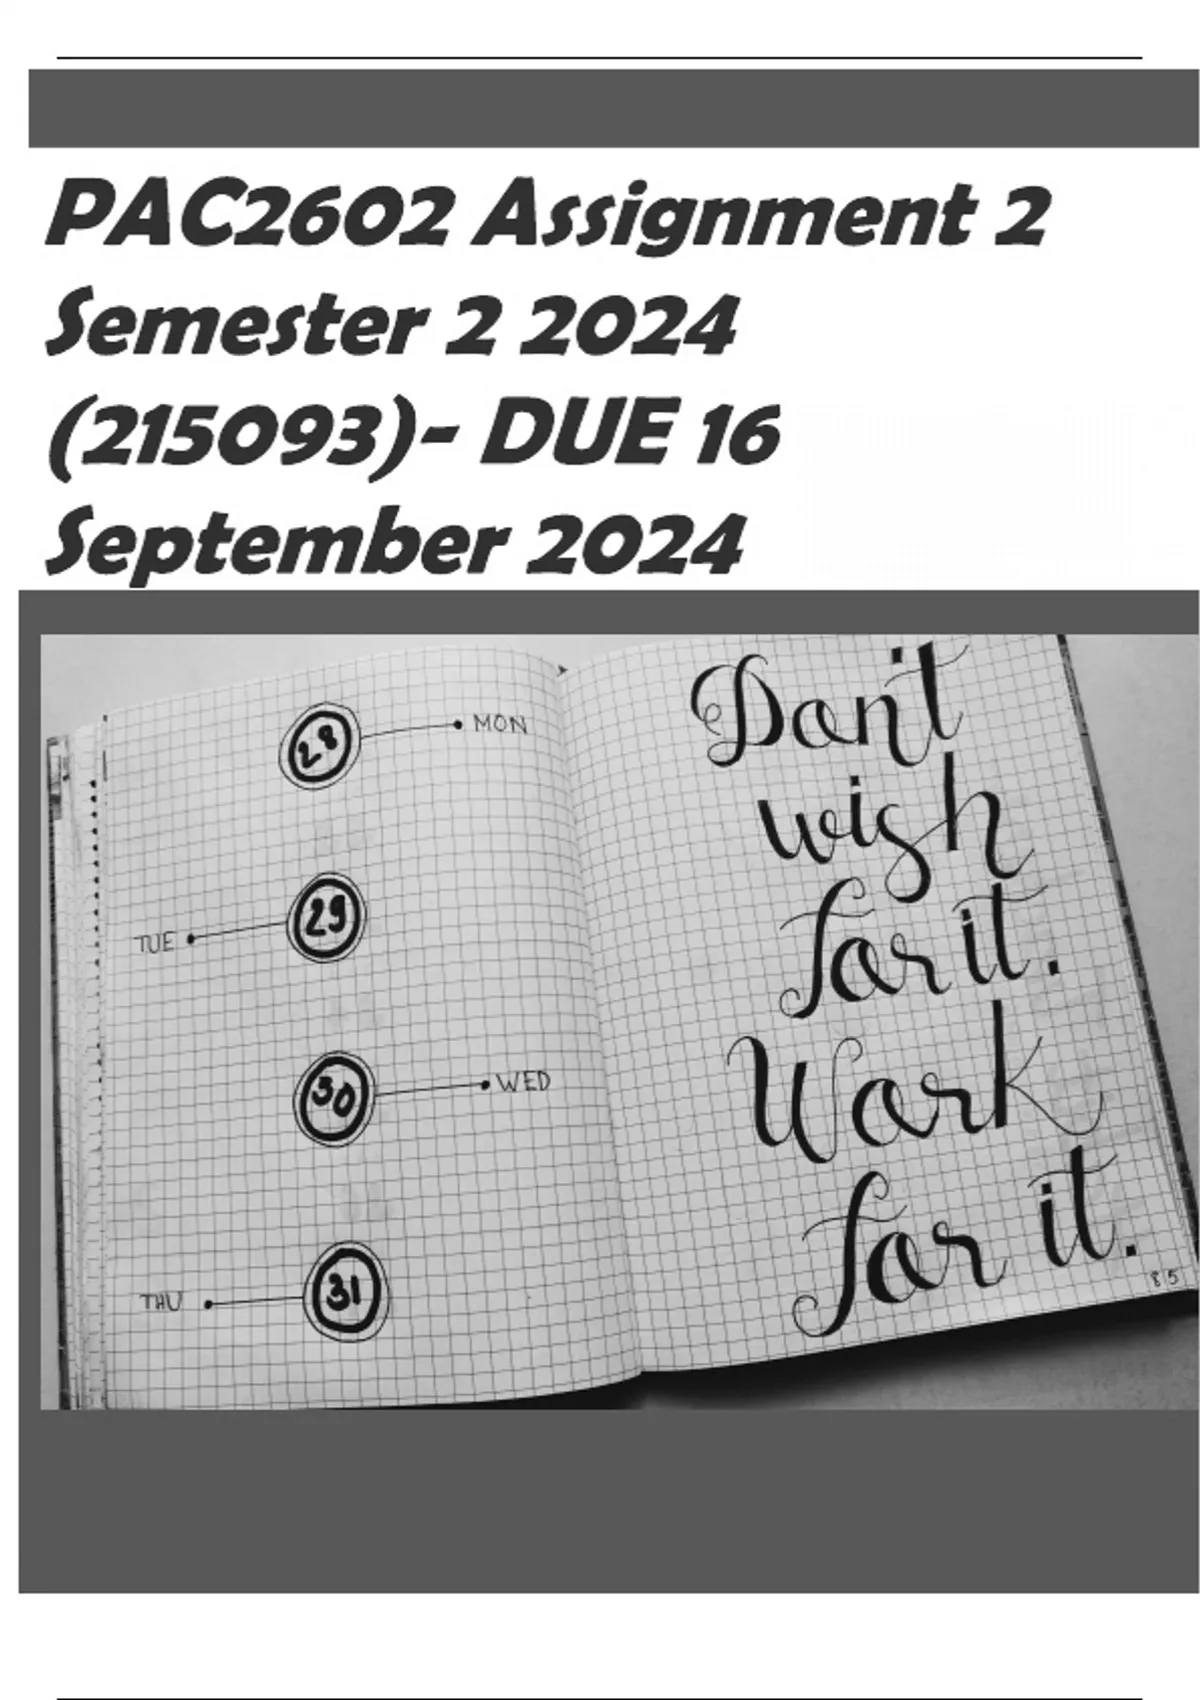 PAC2602 Assignment 2
Semester 2 2024
(215093)- DUE 16
September 2024
28 MON
TUE 29
30 WED
THU 31
Don't
wish
for it.
Work
for it.
85